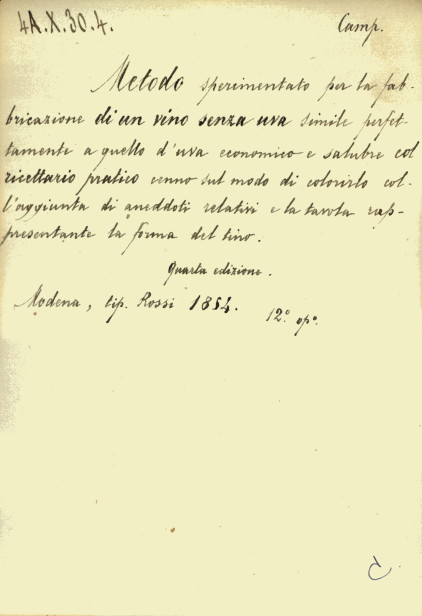 4A.X.30.4.
Camp.
Metodo sperimentato per la fab-
bricazione di un vino senza uva simile perfet-
tamente a quello d'uva economico e salubre col
ricettario pratico cenno sul modo di colorirlo col-
l'aggiunta di aneddoti relativi e la tavola rap-
presentante la forma del tino.
Quarta edizione.
Modena, tip. Rossi 1854.
12.° op.°
C